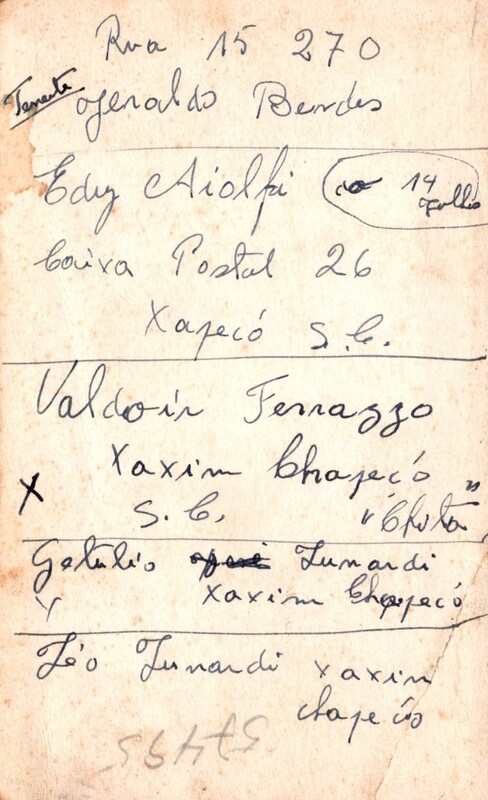 Rua 15 270
Tenente
Geraldo Bendes
Edy Aiolfi
14
Julho
Caixa Postal 26
Xapecó S.C.
Valdoir Ferrazzo
Xaxim Chapecó
X S.C. "Chita"
Getulio Lunardi
Xaxim Chapecó
Léo Lunardi Xaxim
Chapecó